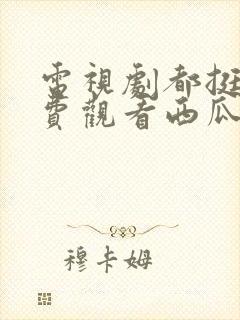 電視劇都挺
費觀看西瓜
穆卡姆